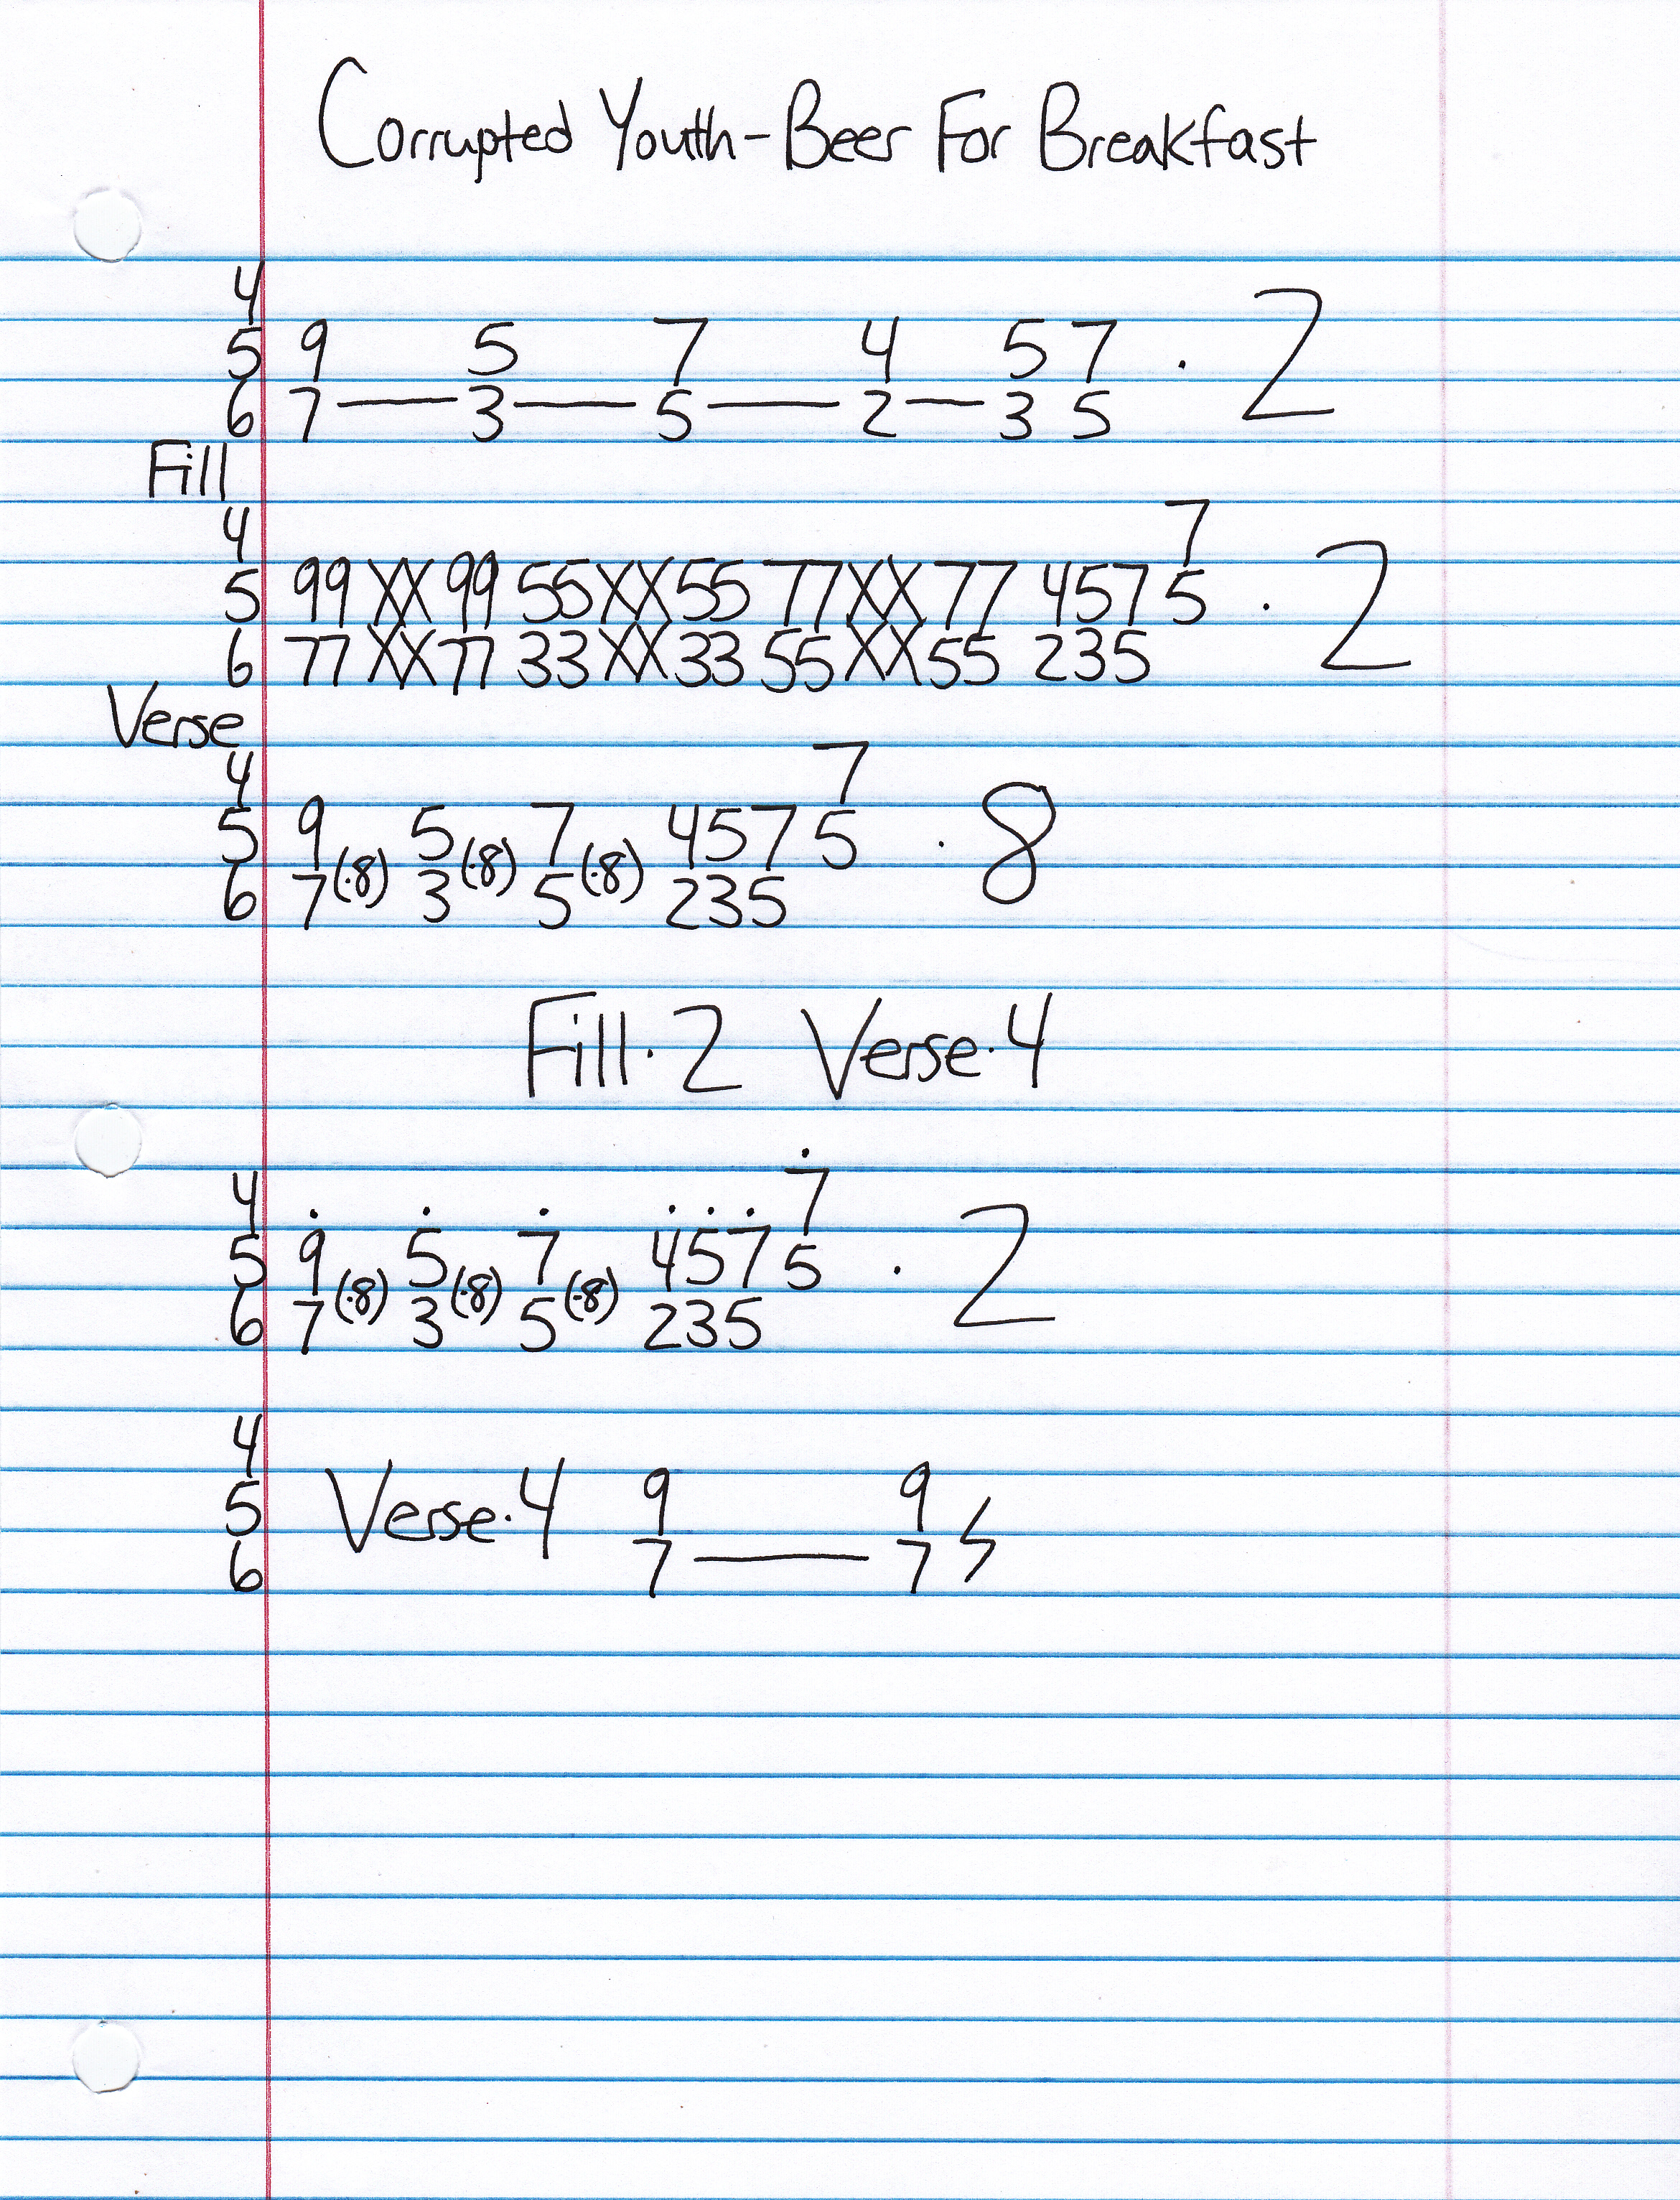 Corrupted Youth-Beer For Breakfast
4
5 9 5 7 4 5 7 · 2
6 7 — 3 — 5 — 2 — 3 5
Fill
4 7
5 99 XX 99 55 XX 55 77 XX 77 4575 · 2
6 77 XX 77 33 XX 33 55 XX 55 235
Verse
4 7
5 9 5 7 4575 · 8
6 7(·8) 3(·8) 5(·8) 235
Fill·2 Verse·4
4 7
5 9 5 7 4575 · 2
6 7(·8) 3(·8) 5(·8) 235
4
5 Verse·4 9 9
6 7 — 7